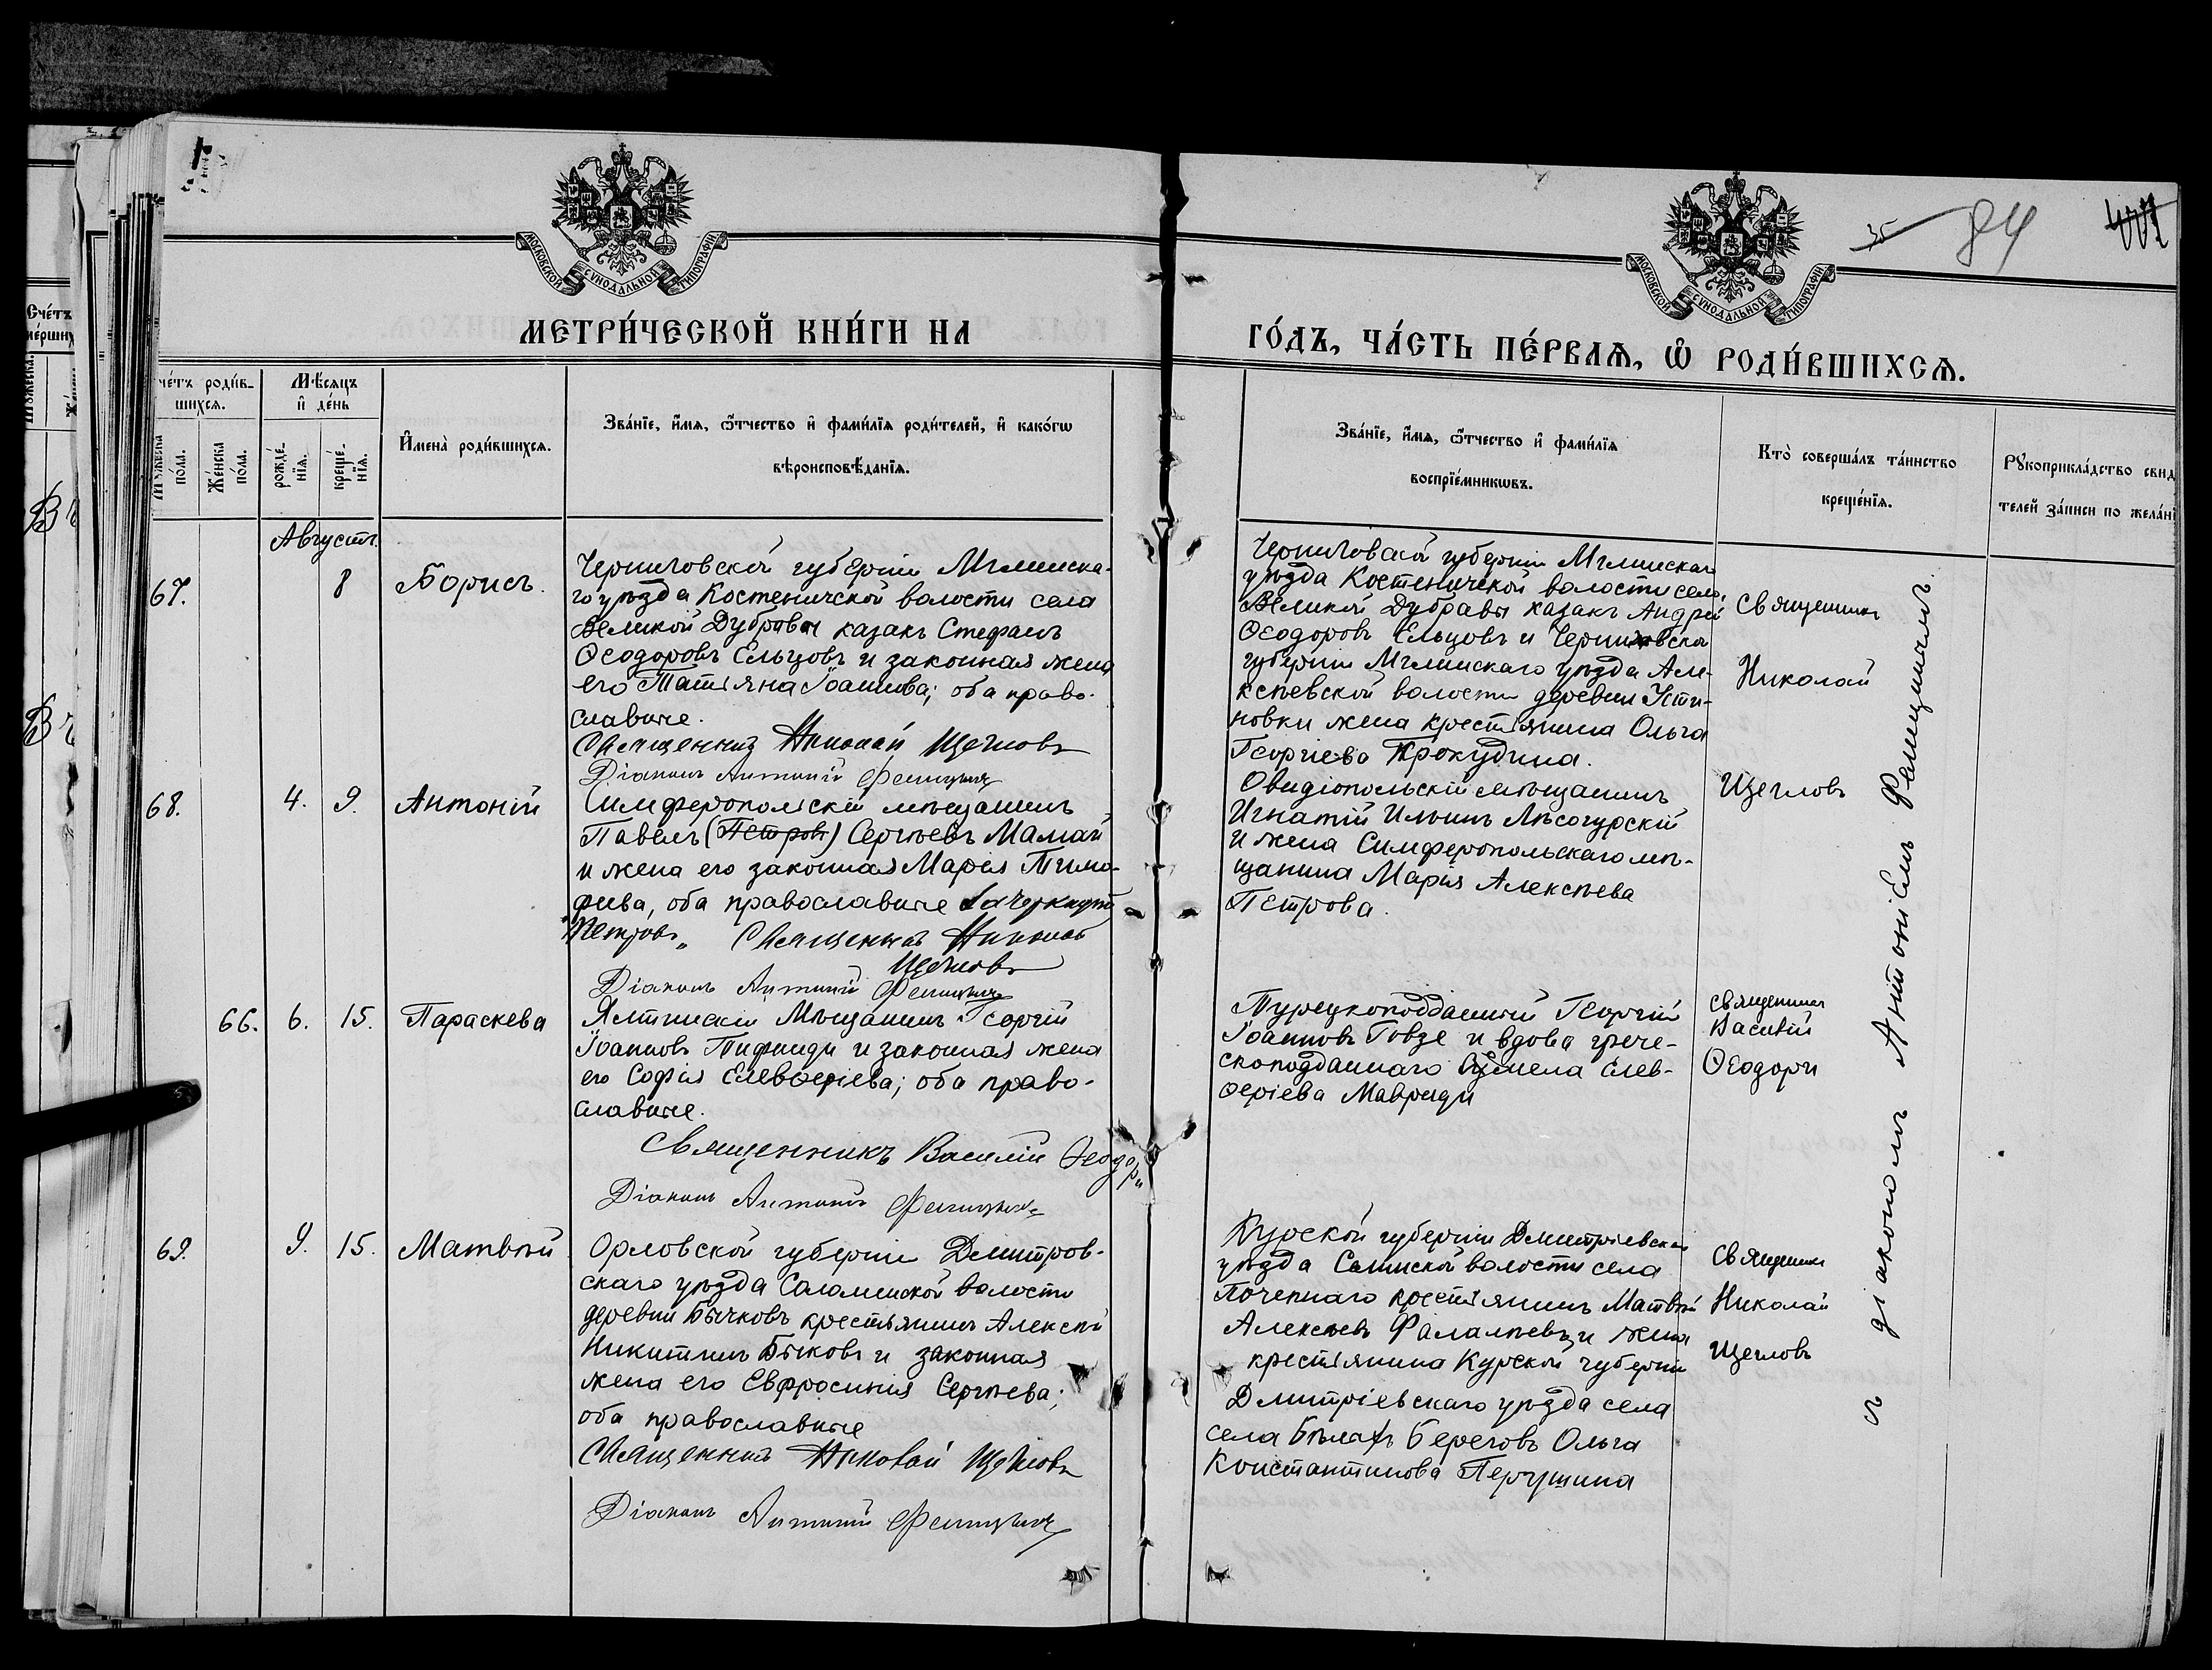 МОСКОВСКОЙ СѴНОДАЛЬНОЙ ТИПОГРАФІИ
МОСКОВСКОЙ СѴНОДАЛЬНОЙ ТИПОГРАФІИ
35 84
МЕТРИ́ЧЕСКОЙ КНИ́ГИ НА
ГО́ДЪ, ЧА́СТЬ ПЕ́РВАѦ, Ѡ҆ РОДИ́ВШИХСѦ.
Счéтъ
че́тъ роди́в-
шихсѧ.
Мѣ́сѧцъ
и҆ де́нь
по́ла.
Же́нска
по́ла.
рожде́-
нїѧ.
креще́-
нїѧ.
И҆мена̀ роди́вшихсѧ.
Зва́нїе, и҆́мѧ, ѻ҆́тчество и҆ фами́лїѧ роди́телей, и҆ како́гѡ
вѣроисповѣ́данїѧ.
Зва́нїе, и҆́мѧ, ѻ҆́тчество и҆ фами́лїѧ
воспрїе́мникѡвъ.
Кто̀ соверша́лъ та́инство
креще́нїѧ.
Рꙋкоприкла́дство свид
телей за́писи по жела́нї
Августъ.
67.
8
Борисъ.
Черниговской губерніи Мглинска-
го уѣзда Костеничской волости села
Великой Дубравы казакъ Стефанъ
Ѳеодоровъ Ельцовъ и законная жена
его Татіяна Іоаннова; оба право-
славные.
Священникъ Николай Щегловъ
Діаконъ Антоній
Черниговской губерніи Мглинскаго
уѣзда Костеничской волости села
Великой Дубравы казакъ Андрей
Ѳеодоровъ Ельцовъ и Черниговской
губерніи Мглинскаго уѣзда Але-
ксѣевской волости деревни Усти-
новки жена крестьянина Ольга
Георгіева Прокудина.
Священникъ
Николай
Щегловъ
68.
4.
9.
Антоній
Симферопольскій мѣщанинъ
Павелъ (Петровъ) Сергѣевъ Мамай
и жена его законная Марія Тимо-
фѣева, оба православные Зачеркнуто
"Петровъ" Священникъ Николай
Щегловъ
Діаконъ Антоній
Овидіопольскій мѣщанинъ
Игнатій Ильинъ Лѣсогурскій
и жена Симферопольскаго мѣ-
щанина Марія Алексѣева
Петрова.
66.
6.
15.
Параскева
Ялтинскій Мѣщанинъ Георгій
Іоанновъ Тифниди и законная жена
его Софія Елевѳеріева; оба право-
славные.
Священникъ Василій Ѳеодори
Діаконъ Антоній
Турецкоподданный Георгій
Іоанновъ Говзе и вдова грече-
скоподданнаго Елев-
ѳеріева Маврыди
Священникъ
Василій
Ѳеодори
69.
9.
15.
Матвѣй
Орловской губерніи Дмитров-
скаго уѣзда Соломинской волости
деревни Бычковъ крестьянинъ Алексѣй
Никитинъ Быковъ и законная
жена его Евфросинія Сергѣева;
оба православные
Священникъ Николай Щегловъ
Діаконъ Антоній
Курской губерніи Дмитріевскаго
уѣзда волости села
Поченнаго крестьянинъ Матвѣй
Алексѣевъ Фалалѣевъ и жена
крестьянина Курской губерніи
Дмитріевскаго уѣзда села
села Бѣлыхъ Береговъ Ольга
Константинова Перушина
Священникъ
Николай
Щегловъ
съ діакономъ Антоніемъ